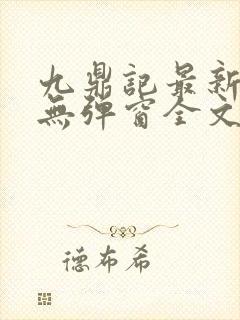 九鼎記最新
無彈窗全文
德布希